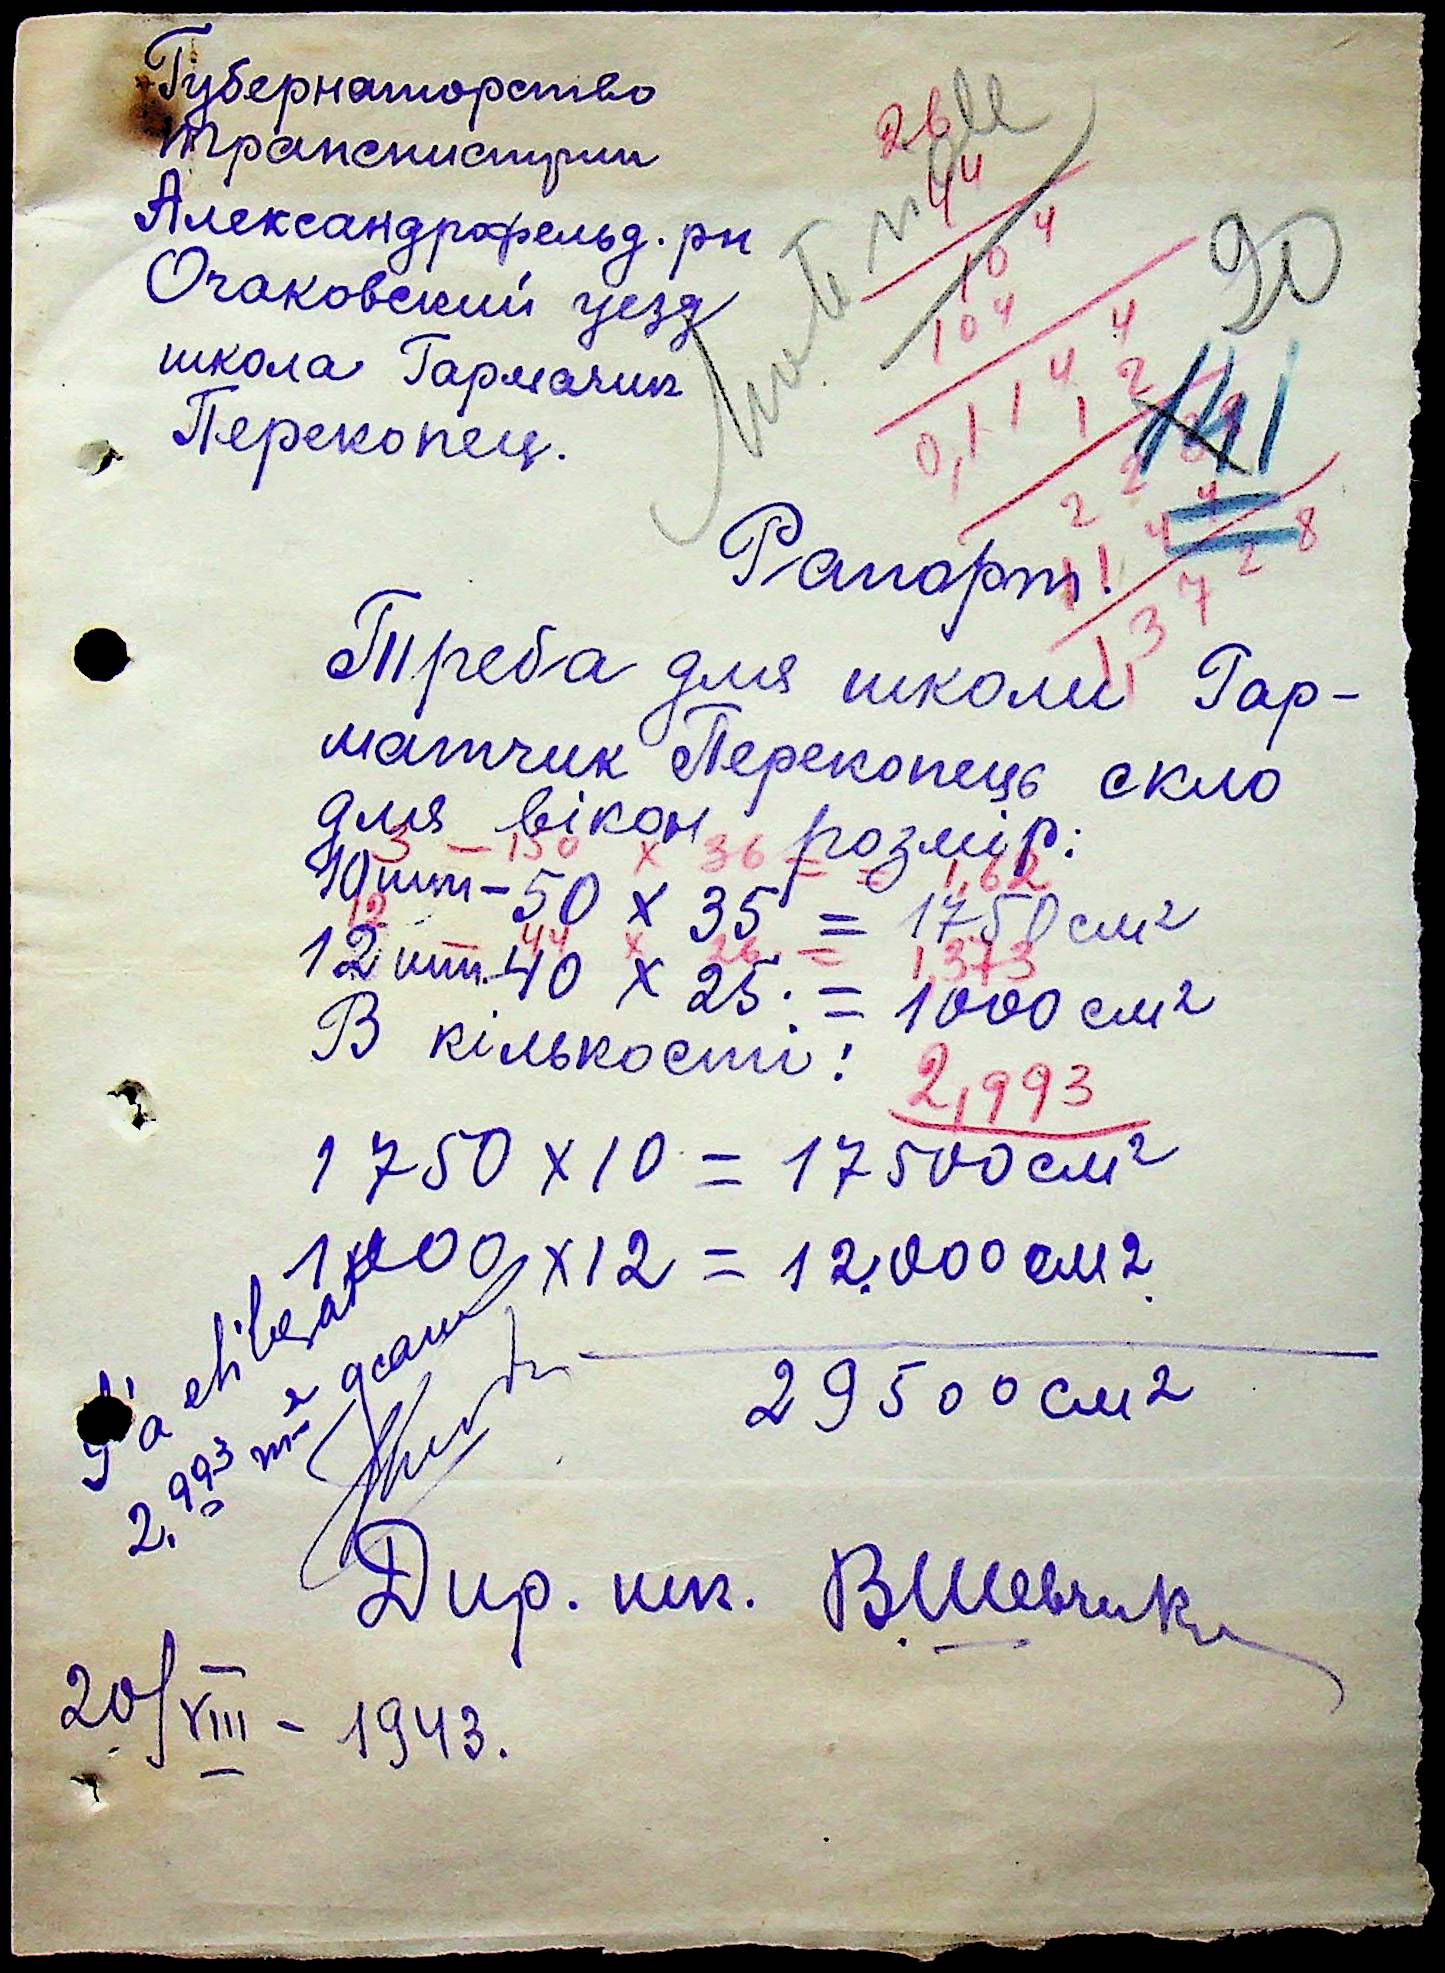 Губернаторство
Транснистрии
Александрофельд. рн
Очаковский уезд
школа Гармачик
Перекопец.
90
141
26
44
104
104
0,1144
12
228
1144
1,3728
Рапорт.
Треба для школи Гар-
матчик Перекопець скло
для вікон розмір:
3 – 150 х 36 = 1,62
10 шт – 50 х 35 = 1750 см2
12 – 44 х 26 = 1,373
12 шт. 40 х 25. = 1000 см2
В кількості:
2,993
1750 х 10 = 17500 см2
1000 х 12 = 12.000 см2.
29500 см2
S'a eliberat
2.993 m2 geam
Дир. шк. В. Шевчик
20/VIII – 1943.